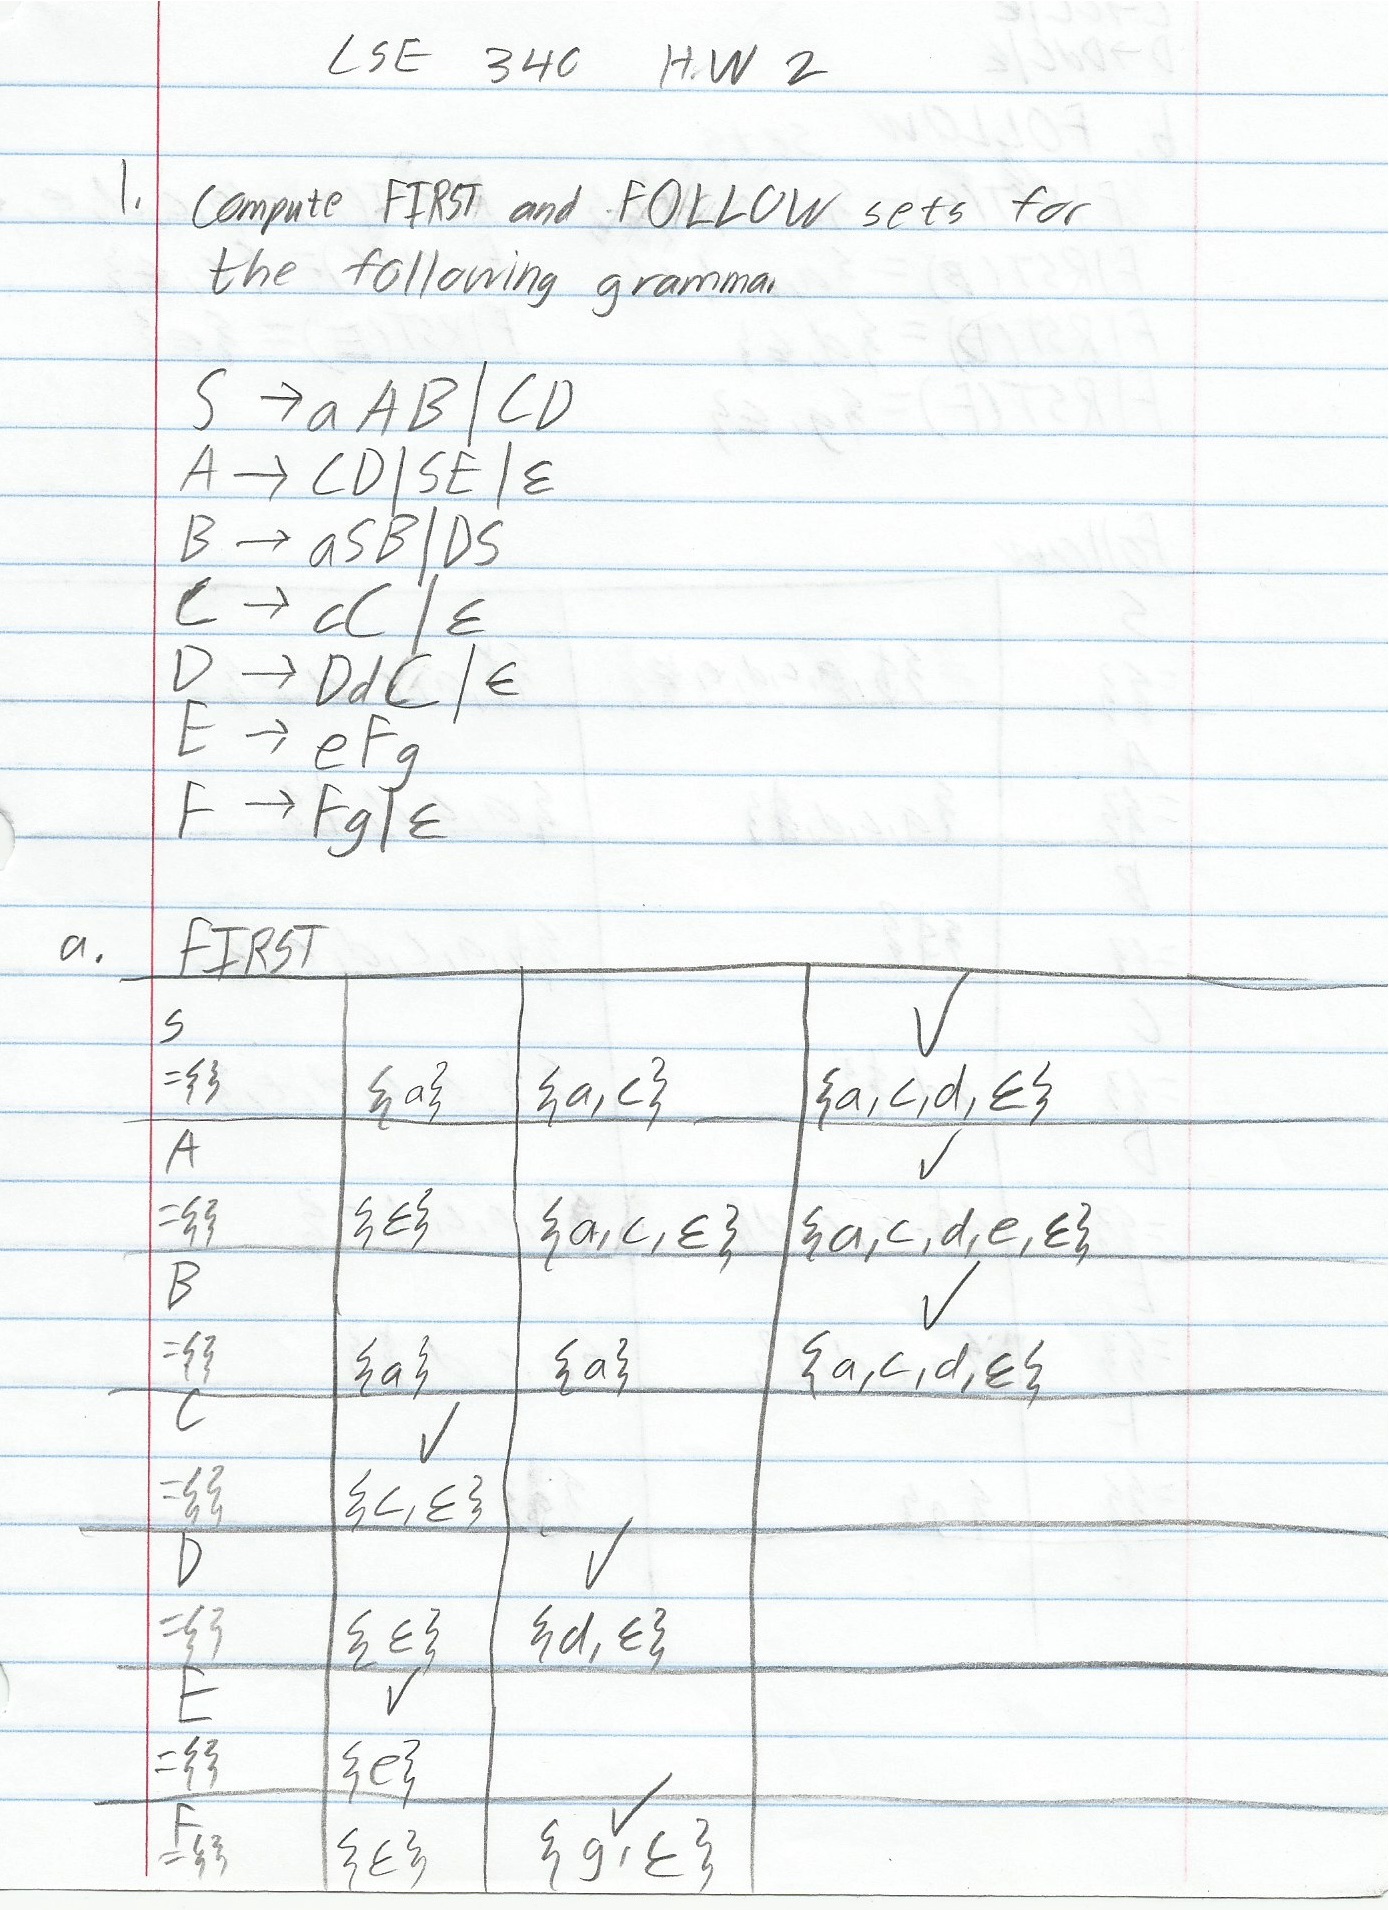 CSE 340 H.W 2
1. Compute FIRST and FOLLOW sets for
the following grammar
S → aAB | CD
A → CD | SE | ε
B → aSB | DS
C → cC | ε
D → DdC | ε
E → eFg
F → Fg | ε
a. FIRST
S ✓
={} {a} {a,c} {a,c,d,ε}
A ✓
={} {ε} {a,c,ε} {a,c,d,e,ε}
B ✓
={} {a} {a} {a,c,d,ε}
C ✓
={} {c,ε}
D ✓
={} {ε} {d,ε}
E ✓
={} {e}
F ✓
={} {ε} {g,ε}